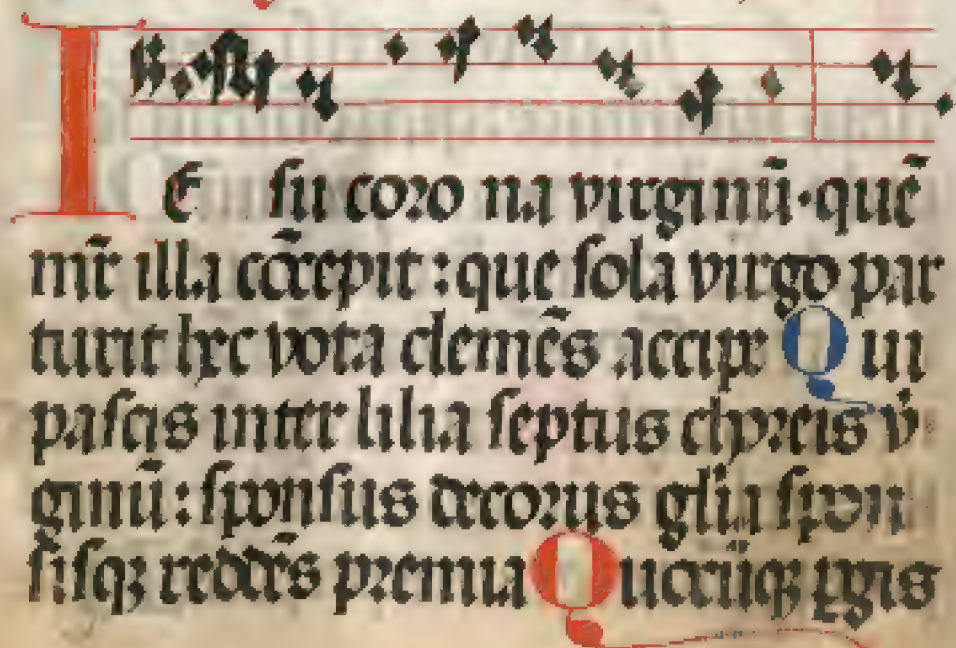 IE su coro na virginū · quē
mr̄ illa cōcepit : que sola virgo par
turit hec vota clemēs accipe Qui
pascis inter lilia septus choreis v̇
ginū : sponsus decorus glīa spon
sisqꝫ reddēs premia Quocūqꝫ ꝑgis